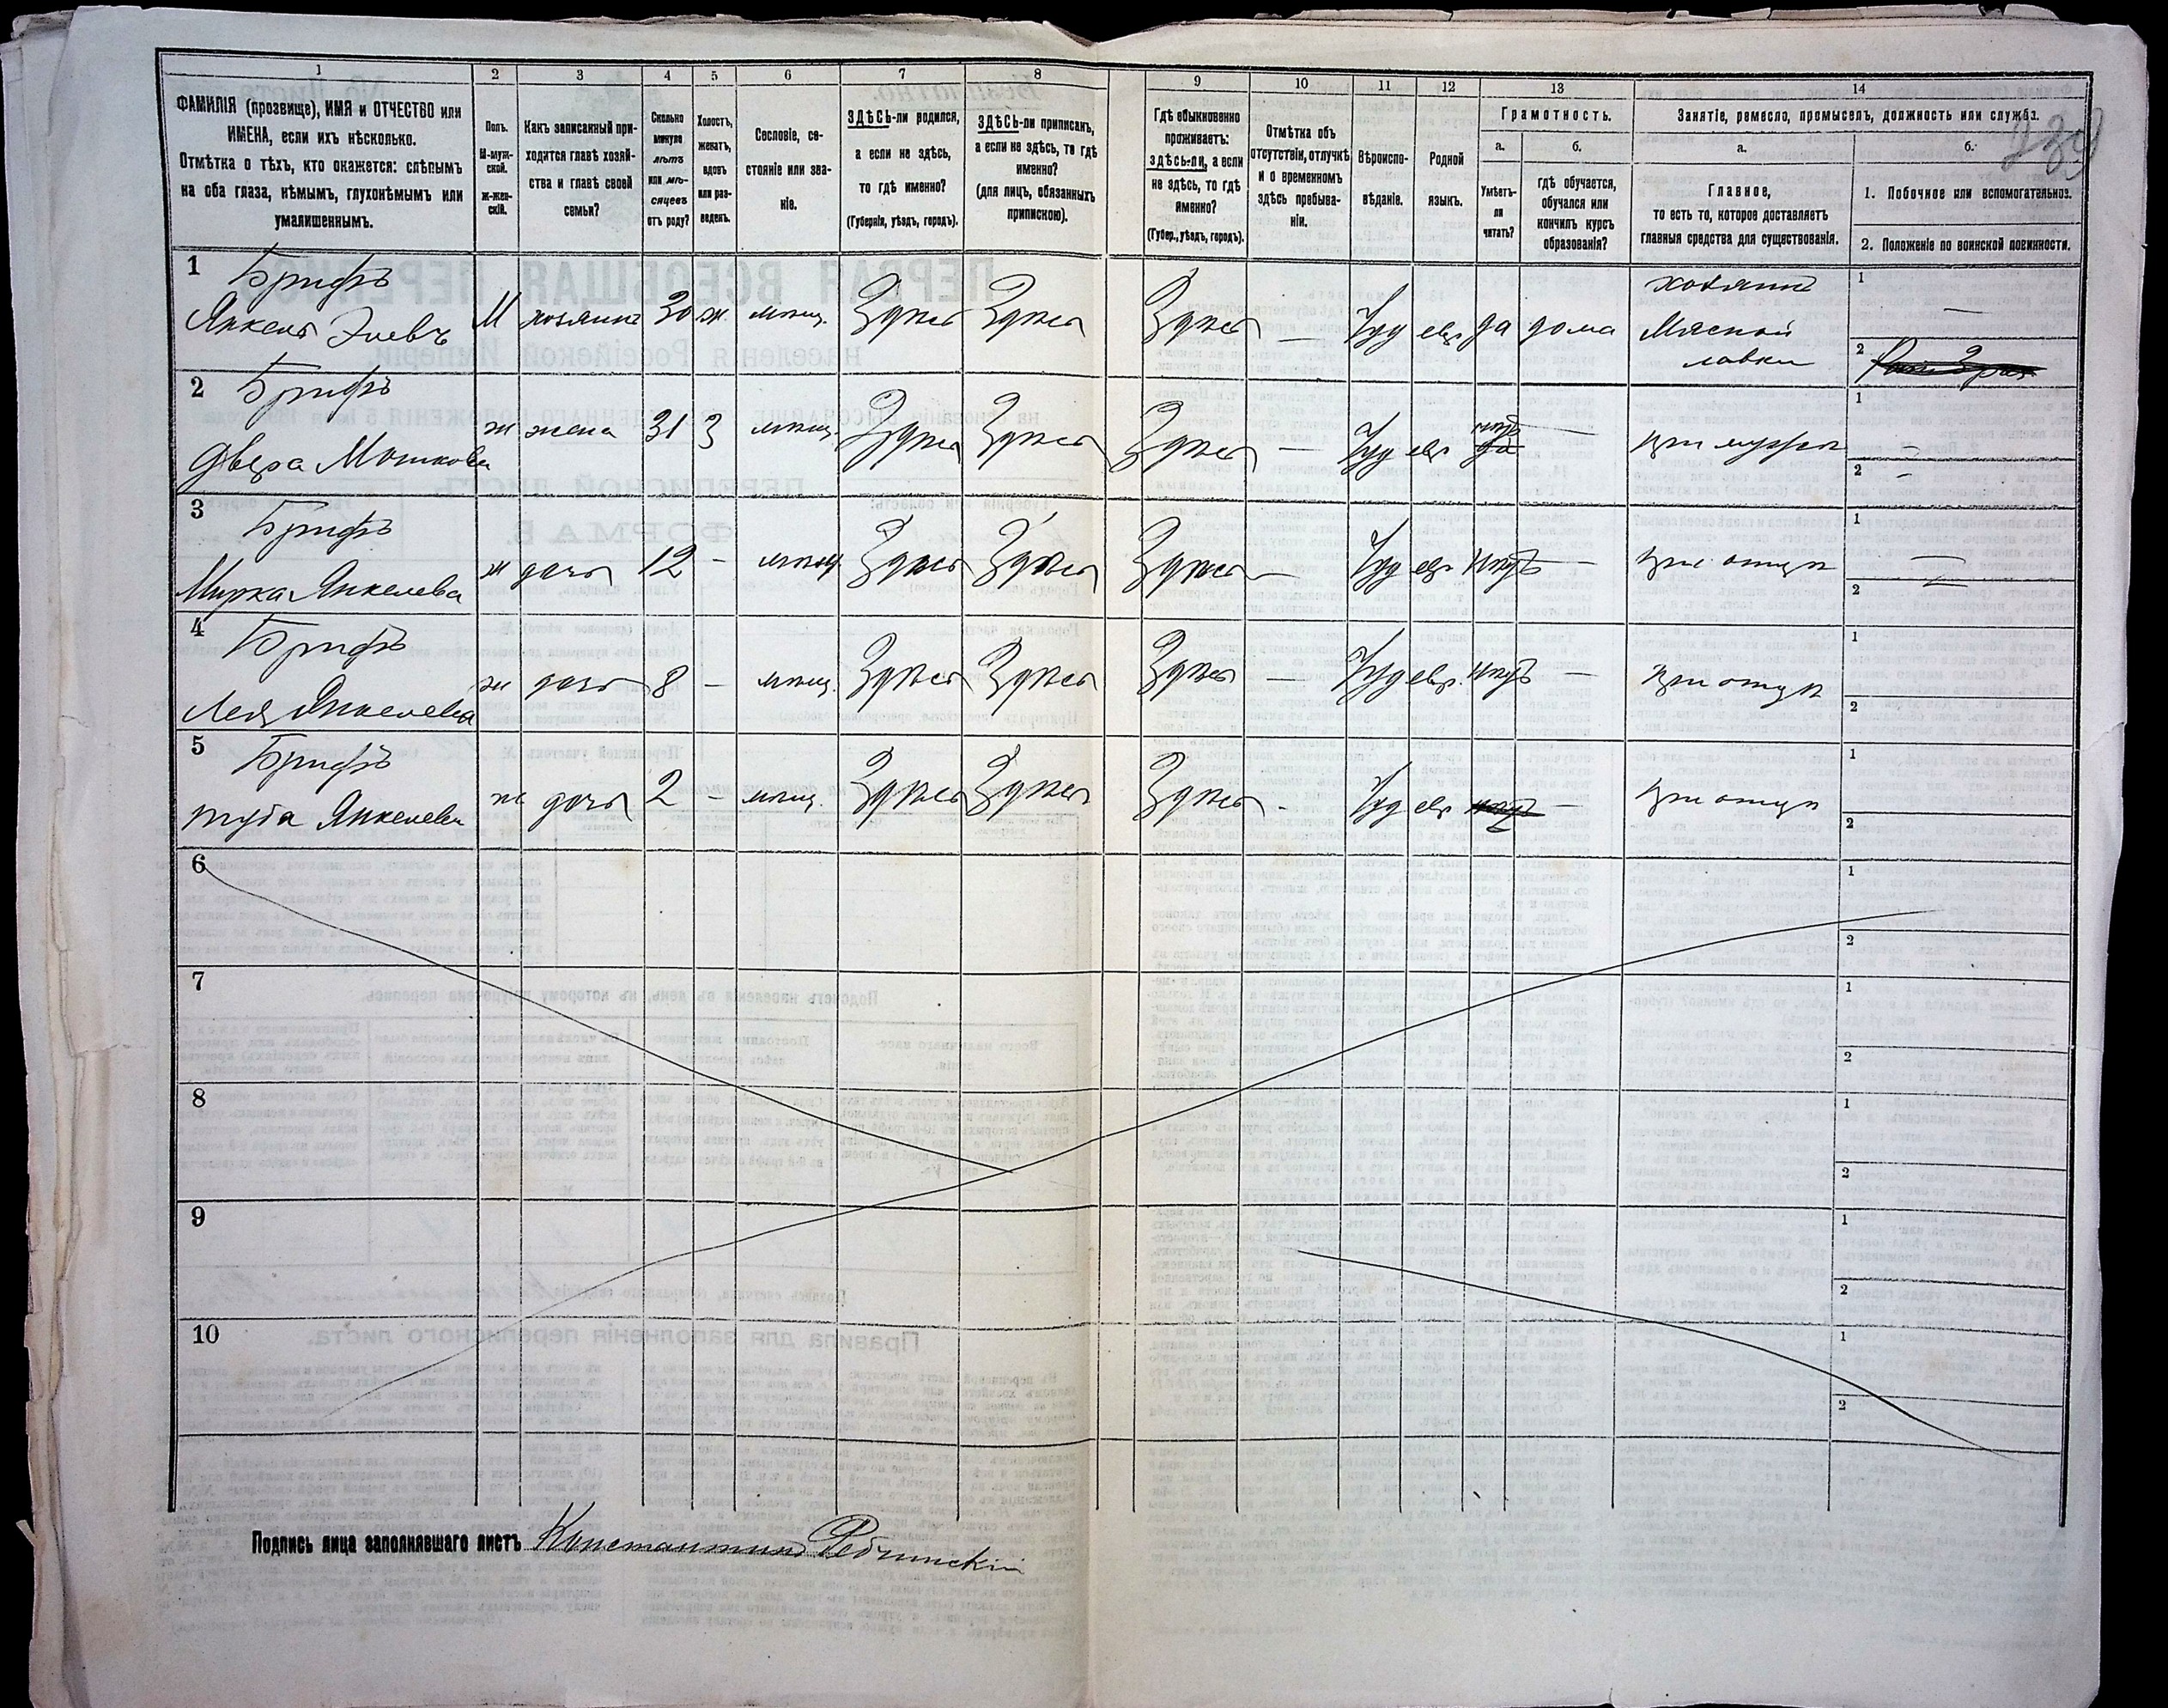 1 2 3 4 5 6 7 8 9 10 11 12 13 14
ФАМИЛІЯ (прозвище), ИМЯ и ОТЧЕСТВО или
ИМЕНА, если ихъ нѣсколько.
Отмѣтка о тѣхъ, кто окажется: слѣпымъ
на оба глаза, нѣмымъ, глухонѣмымъ или
умалишеннымъ.
Полъ.
М-муж-
ской.
Ж-жен-
скій.
Какъ записанный при-
ходится главѣ хозяй-
ства и главѣ своей
семьи?
Сколько
минуло
лѣтъ
или мѣ-
сяцевъ
отъ роду?
Холостъ,
женатъ,
вдовъ
или раз-
веденъ.
Сословіе, со-
стояніе или зва-
ніе.
ЗДѢСЬ-ли родился,
а если не здѣсь,
то гдѣ именно?
(Губернія, уѣздъ, городъ).
ЗДѢСЬ-ли приписанъ,
а если не здѣсь, то гдѣ
именно?
(для лицъ, обязанныхъ
припискою).
Гдѣ обыкновенно
проживаетъ:
здѣсь-ли, а если
не здѣсь, то гдѣ
именно?
(Губер., уѣздъ, городъ).
Отмѣтка объ
отсутствіи, отлучкѣ
и о временномъ
здѣсь пребыва-
ніи.
Вѣроиспо-
вѣданіе.
Родной
языкъ.
Грамотность.
а. б.
Умѣетъ-
ли
читать?
гдѣ обучается,
обучался или
кончилъ курсъ
образованія?
Занятіе, ремесло, промыселъ, должность или служба.
а. б.
Главное,
то есть то, которое доставляетъ
главныя средства для существованія.
1. Побочное или вспомогательное.
2. Положеніе по воинской повинности.
239
1 Брифъ хозяинъ 1 —
Янкель Элевъ М хозяинъ 30 ж. мѣщ. Здѣсь Здѣсь Здѣсь — Іуд евр да дома Мясной
лавки 2
2 Брифъ 1 —
Двера Мошкова ж жена 31 З мѣщ. Здѣсь Здѣсь Здѣсь — Іуд евр нѣтъ — при мужѣ 2 —
3 Брифъ 1 —
Мирка Янкелева ж дочь 12 - мѣщ Здѣсь Здѣсь Здѣсь — Іуд евр нѣтъ — при отцѣ 2 —
4 Брифъ 1
Лея Янкелева ж дочь 8 - мѣщ. Здѣсь Здѣсь Здѣсь — Іуд евр. нѣтъ — при отцѣ 2
5 Брифъ 1
Туба Янкелева ж дочь 2 - мѣщ. Здѣсь Здѣсь Здѣсь - Іуд евр нѣтъ — при отцѣ 2
6 1
2
7 1
2
8 1
2
9 1
2
10 1
2
Подпись лица заполнявшаго листъ Константинъ